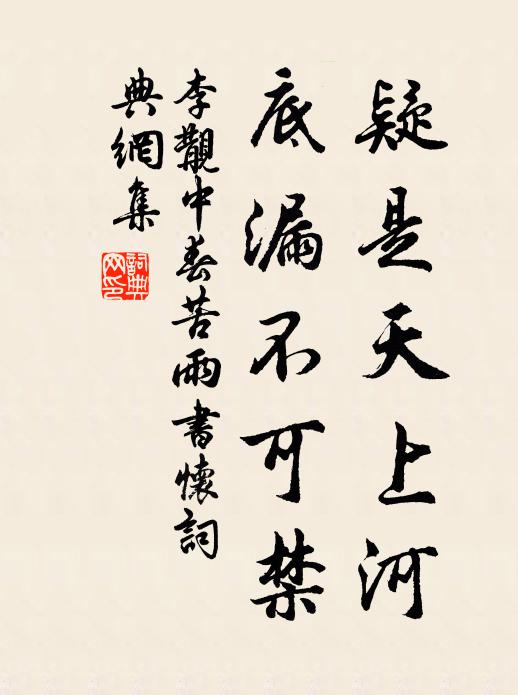 疑是天上河
底漏不可禁
李觀中春苦雨書懷詞
典網集
詞典
网印